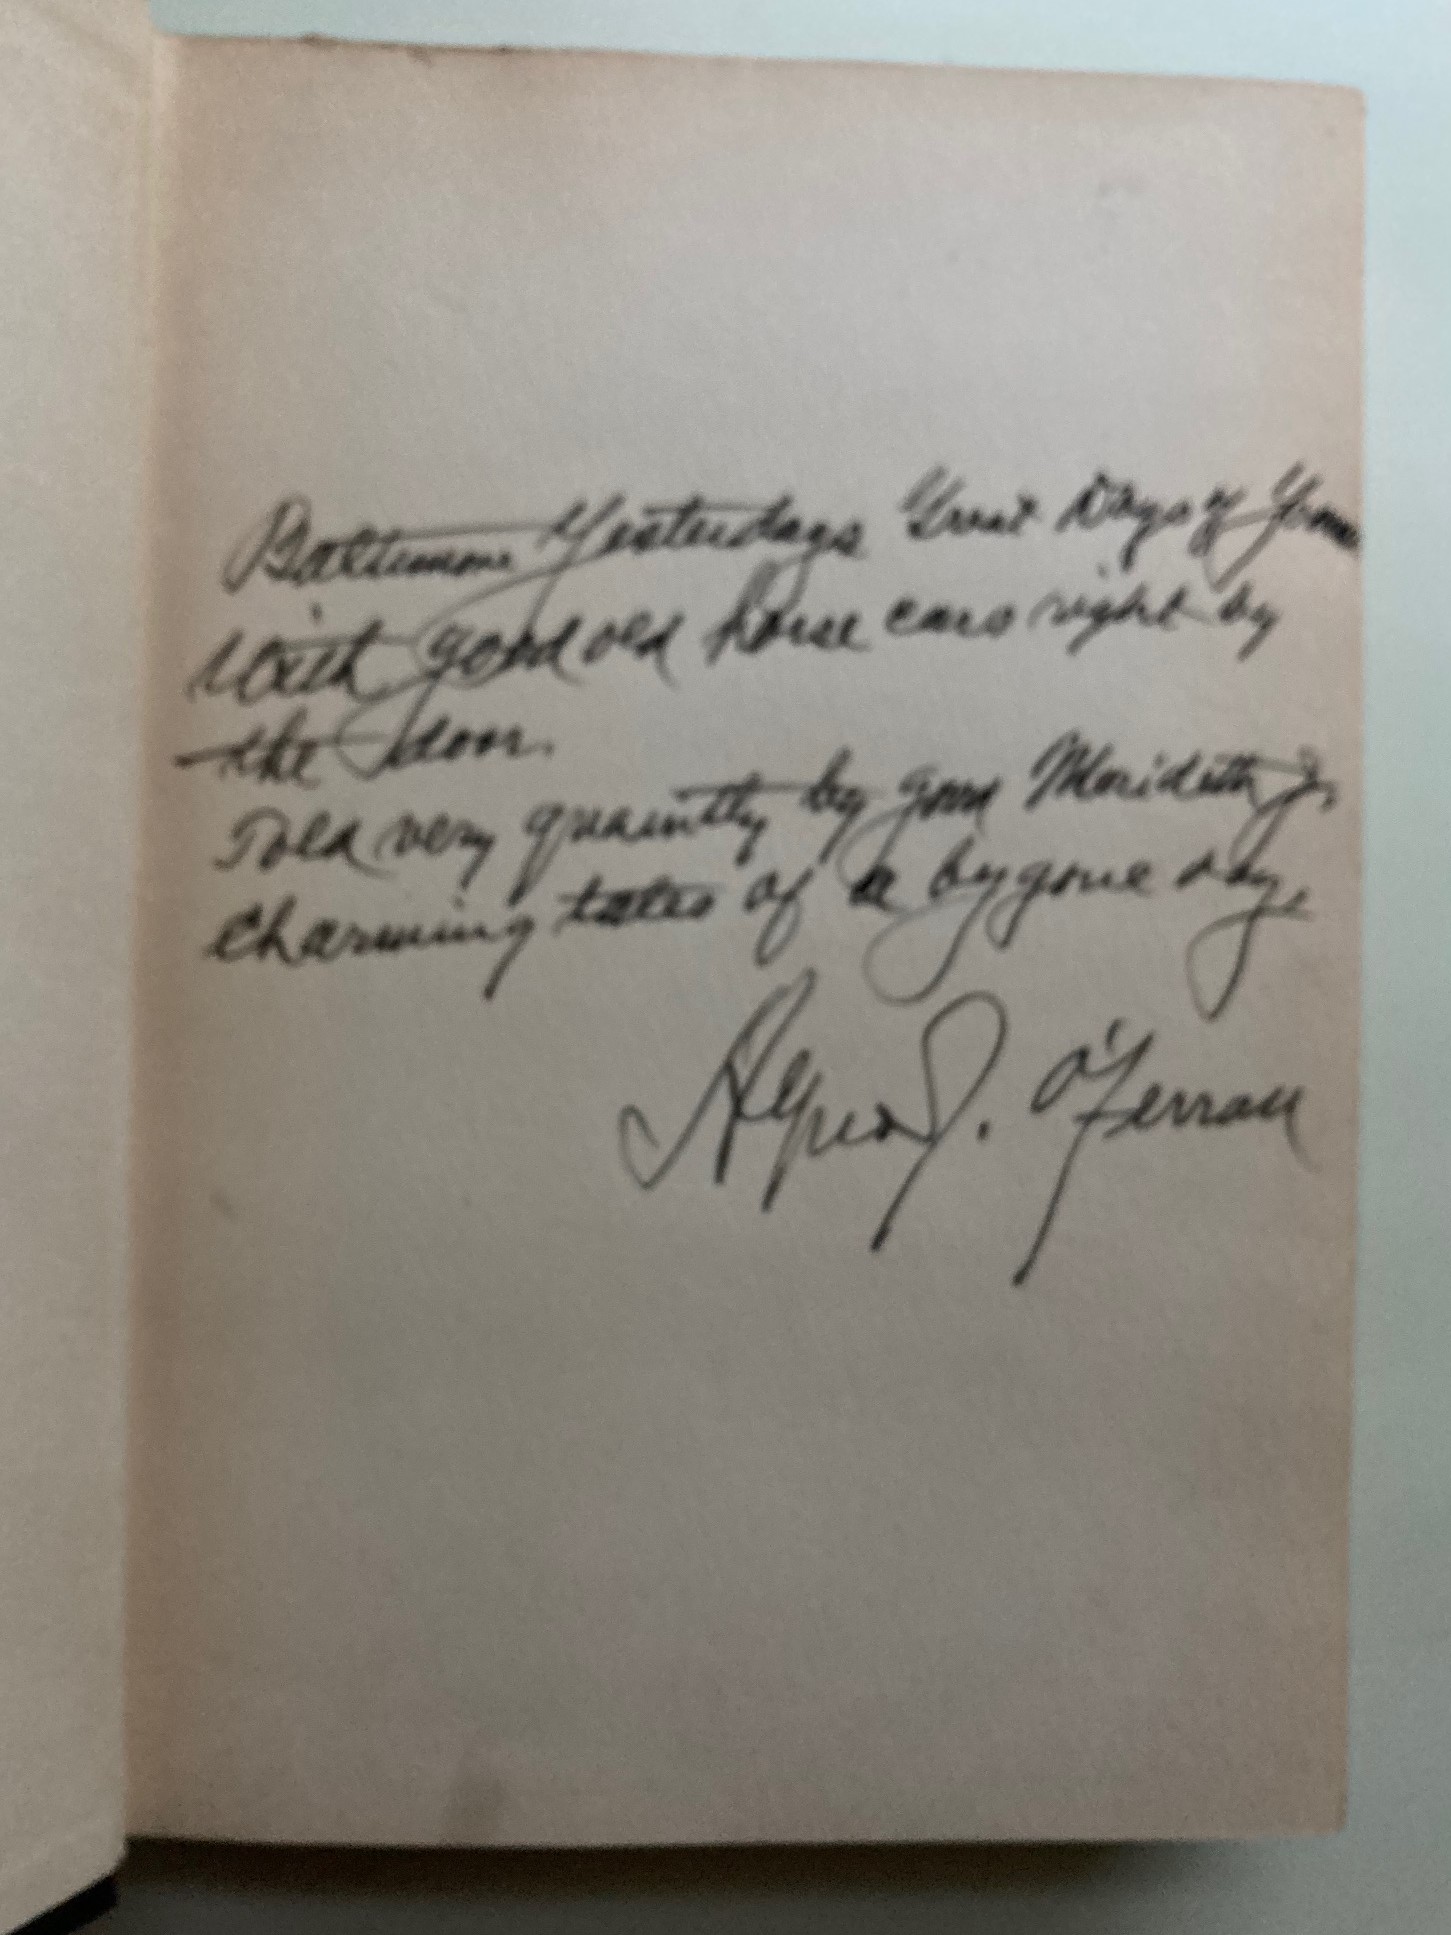 Baltimore Yesterdays Great Days of Yore
With good old horse cars right by
the door.
Told very quaintly by good Meridith J.
Charming tales of a bygone day.
J. O'Ferrall